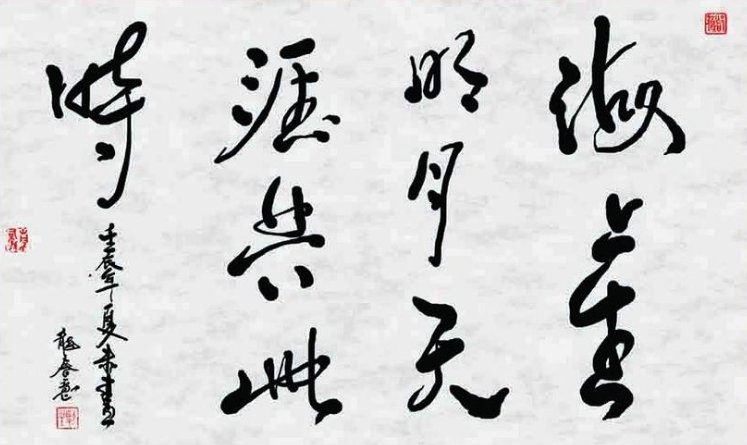 海上生
明月天
涯共此
時
壬辰年夏末書
龍春